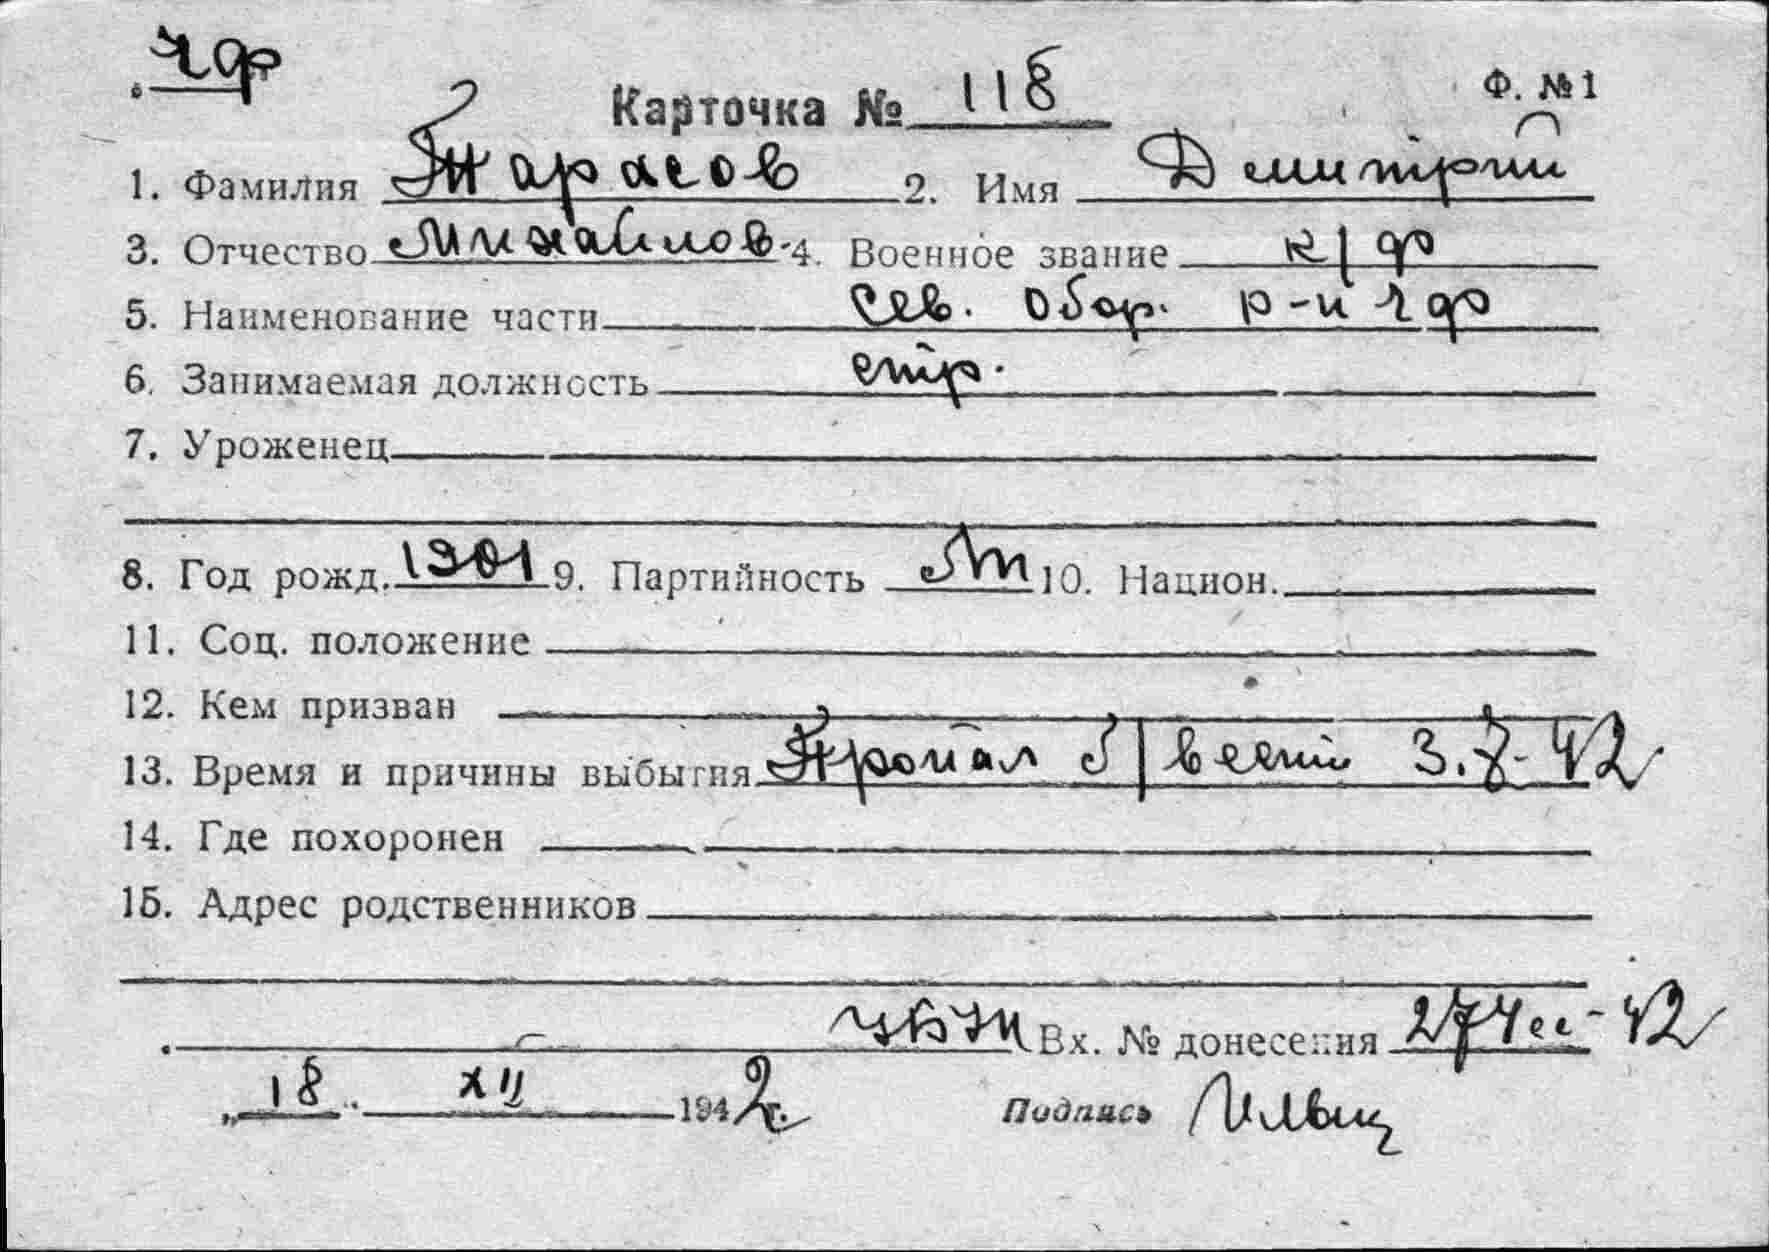 чф
Карточка № 118
Ф. №1
1. Фамилия Тарасов 2. Имя Дмитрий
3. Отчество Михайлов. 4. Военное звание к/ф
5. Наименование части Сев. Обор. р-н чф
6. Занимаемая должность стр.
7. Уроженец
8. Год рожд. 1901 9. Партийность 10. Национ.
11. Соц. положение
12. Кем призван
13. Время и причины выбытия Пропал б/вести 3.7-42
14. Где похоронен
15. Адрес родственников
Вх. № донесения 274сс-42
„18" XII 1942г. Подпись